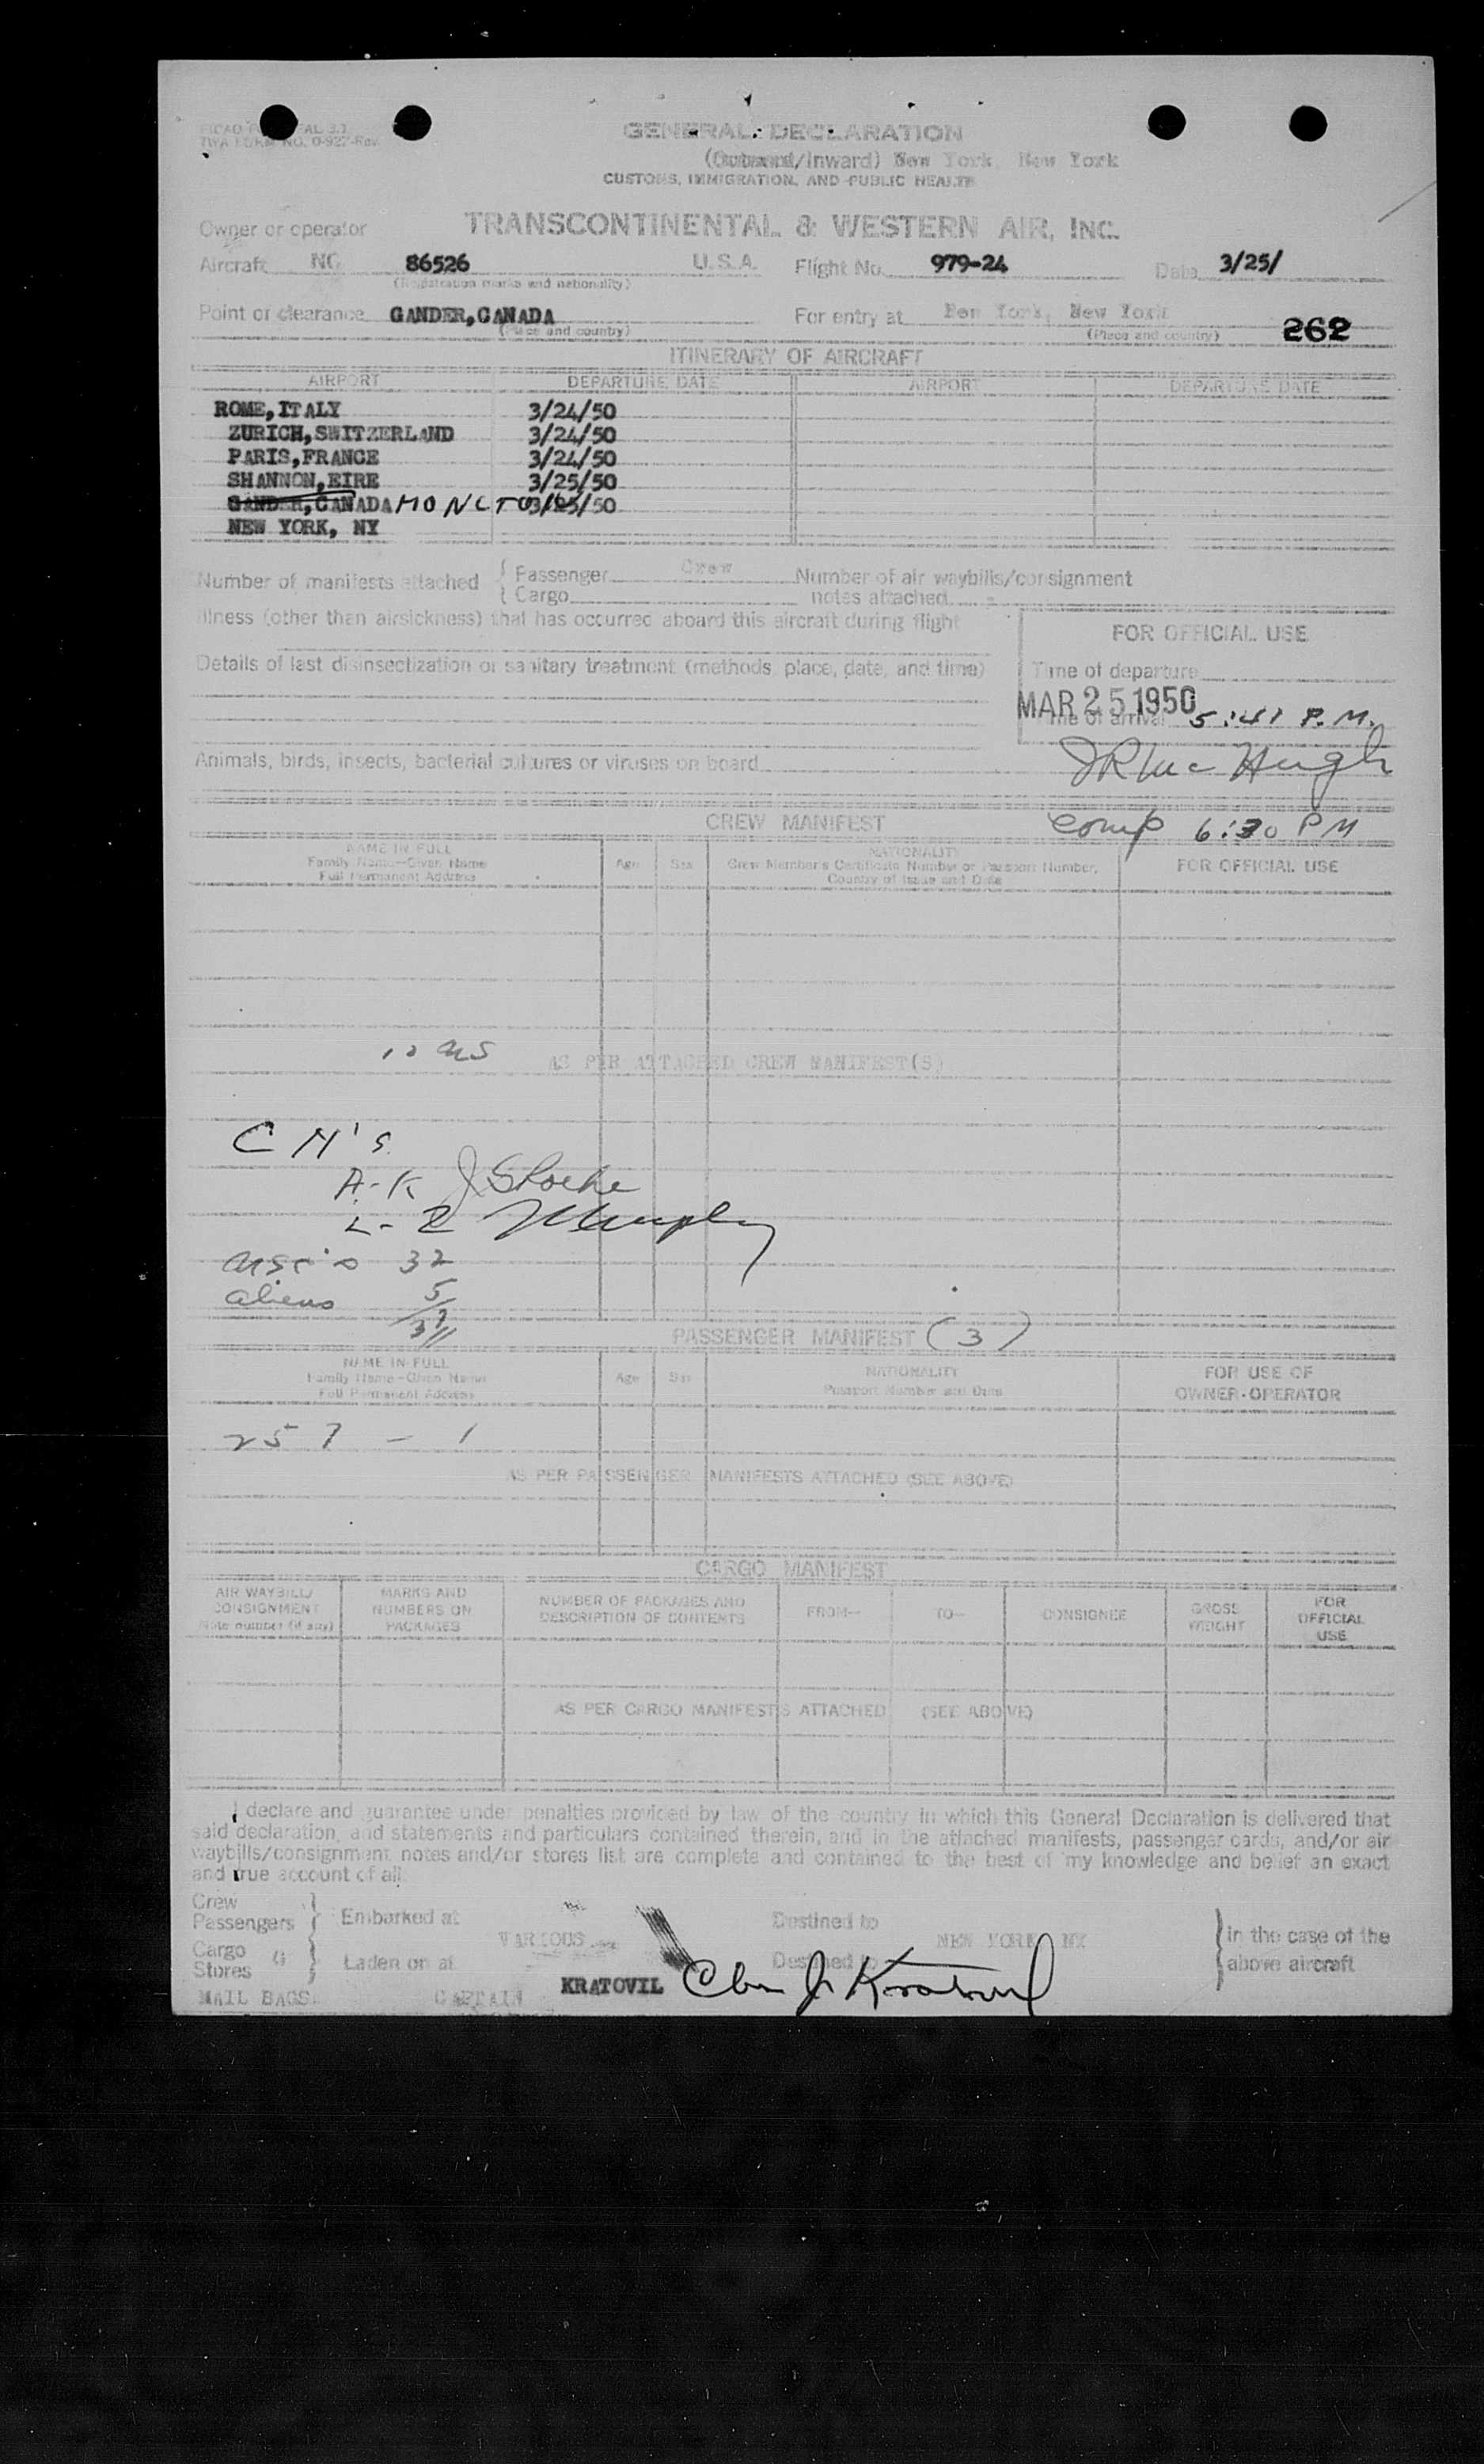 GENERAL DECLARATION
(Outward/Inward) New York, New York
CUSTOMS, IMMIGRATION, AND PUBLIC HEALTH
TWA FORM NO. 0-927-Rev.
Owner or operator TRANSCONTINENTAL & WESTERN AIR, INC.
Aircraft NC 86526 U.S.A. Flight No. 979-24 Date 3/25/
(Registration marks and nationality)
Point of clearance GANDER, CANADA For entry at New York, New York
(Place and country) (Place and country) 262
ITINERARY OF AIRCRAFT
AIRPORT DEPARTURE DATE AIRPORT DEPARTURE DATE
ROME, ITALY 3/24/50
ZURICH, SWITZERLAND 3/24/50
PARIS, FRANCE 3/24/50
SHANNON, EIRE 3/25/50
GANDER, CANADA MONCTO 3/25/50
NEW YORK, NY
Number of manifests attached { Passenger Crew Number of air waybills/consignment
{ Cargo notes attached
Illness (other than airsickness) that has occurred aboard this aircraft during flight
FOR OFFICIAL USE
Details of last disinsectization or sanitary treatment (methods, place, date, and time)
Time of departure
MAR 25 1950
Time of arrival 5:41 P.M.
Animals, birds, insects, bacterial cultures or viruses on board
JR McHugh
CREW MANIFEST comp 6:30 PM
NAME IN FULL
Family Name—Given Name
Full Permanent Address
Age Sex
NATIONALITY
Crew Member's Certificate Number or Passport Number,
Country of Issue and Date
FOR OFFICIAL USE
AS PER ATTACHED CREW MANIFEST(S)
A-K
L-Z Murphy
32
aliens 5
37
PASSENGER MANIFEST (3)
NAME IN FULL
Family Name—Given Name
Full Permanent Address
Age Sex
NATIONALITY
Passport Number and Date
FOR USE OF
OWNER-OPERATOR
257 - 1
AS PER PASSENGER MANIFESTS ATTACHED (SEE ABOVE)
CARGO MANIFEST
AIR WAYBILL/
CONSIGNMENT
Note number (if any)
MARKS AND
NUMBERS ON
PACKAGES
NUMBER OF PACKAGES AND
DESCRIPTION OF CONTENTS
FROM— TO— CONSIGNEE
GROSS
WEIGHT
FOR
OFFICIAL
USE
AS PER CARGO MANIFESTS ATTACHED (SEE ABOVE)
I declare and guarantee under penalties provided by law of the country in which this General Declaration is delivered that
said declaration, and statements and particulars contained therein, and in the attached manifests, passenger cards, and/or air
waybills/consignment notes and/or stores list are complete and contained to the best of my knowledge and belief an exact
and true account of all
Crew
Passengers } Embarked at Destined to
VARIOUS NEW YORK NY
Cargo
Stores } Laden on at Destined to
} in the case of the
above aircraft
MAIL BAGS: CAPTAIN KRATOVIL